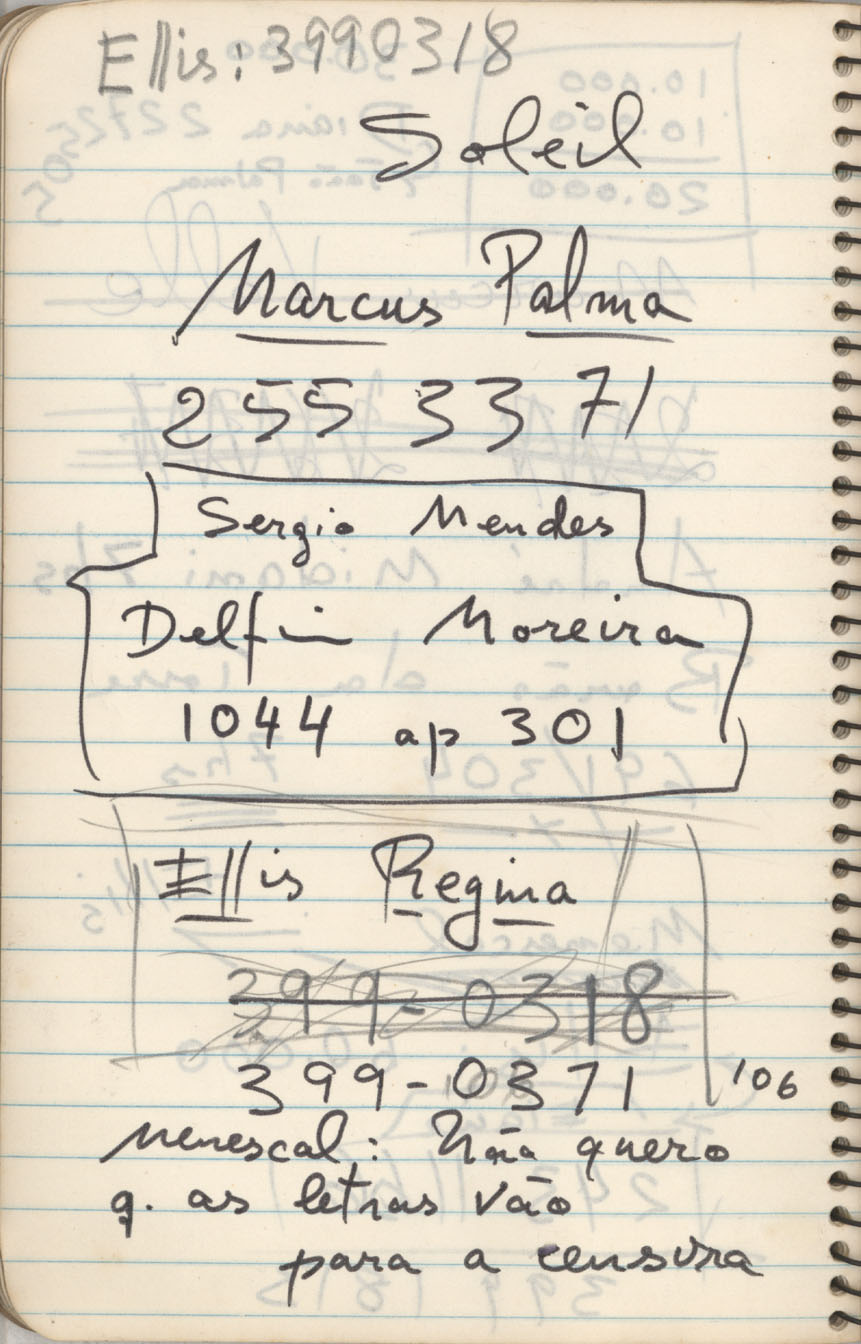 Ellis: 3990318
Soleil
Marcus Palma
255 33 71
Sergio Mendes
Delfim Moreira
1044 ap 301
Ellis Regina
399-0318
399-0371 '106
Menescal: Não quero
q. as letras vão
para a censura